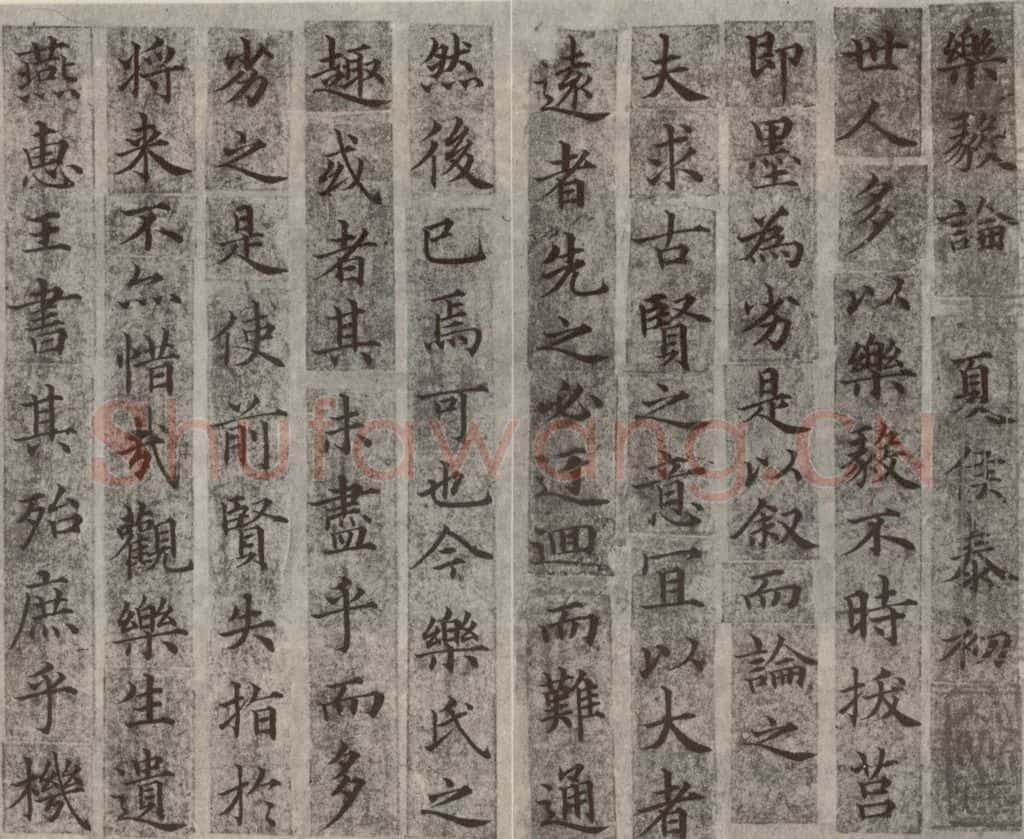 樂毅論 夏侯泰初
世人多以樂毅不時拔莒
即墨為劣是以叙而論之
夫求古賢之意宜以大者
遠者先之必迂迴而難通
然後已焉可也今樂氏之
趣或者其未盡乎而多
劣之是使前賢失指於
将来不亦惜哉觀樂生遺
燕惠王書其殆庶乎機
Shufawang.CN